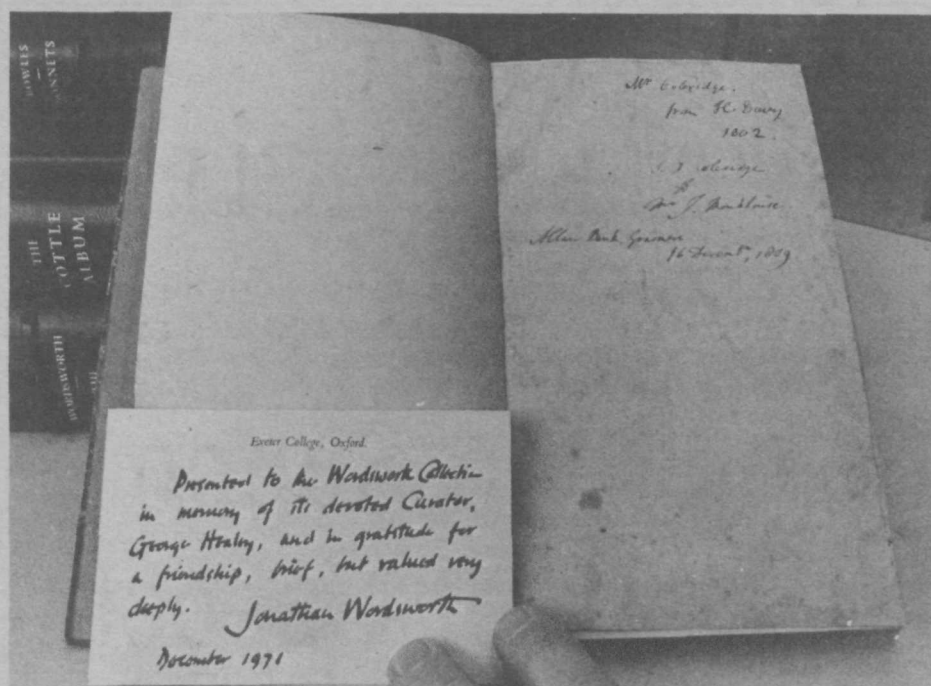 BOWLES
SONNETS
THE
COTTLE
ALBUM
WORDSWORTH
Mr Coleridge.
from H. Davy
1802.
Coleridge
to
Mr J. Monkhouse
Allan Bank Grasmere
16 Decemb, 1809
Exeter College, Oxford.
Presented to the Wordsworth Collection
in memory of its devoted Curator,
George Healey, and in gratitude for
a friendship, brief, but valued very
deeply.
Jonathan Wordsworth
December 1971